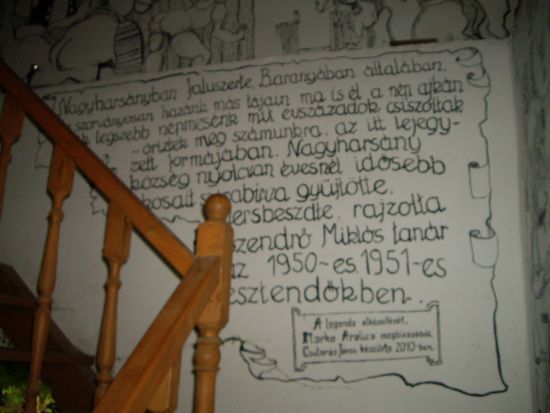 Nagyharsányban Faluszerte, Baranyában általában,
szorványosan hazánk más tájain ma is él a nép ajkán
legszebb népmesénk mit évszázadok csiszoltak
őriztek meg számunkra, az itt lejegy-
zett formájában. Nagyharsány
község nyolcvan évesnél idősebb
szórabirva gyűjtötte,
versbeszdte, rajzolta
Szendrő Miklós tanár
az 1950-es, 1951-es
esztendőkben.
A legenda elkészítését,
Marka Aralica megbízásából,
János készítette 2010-ben.